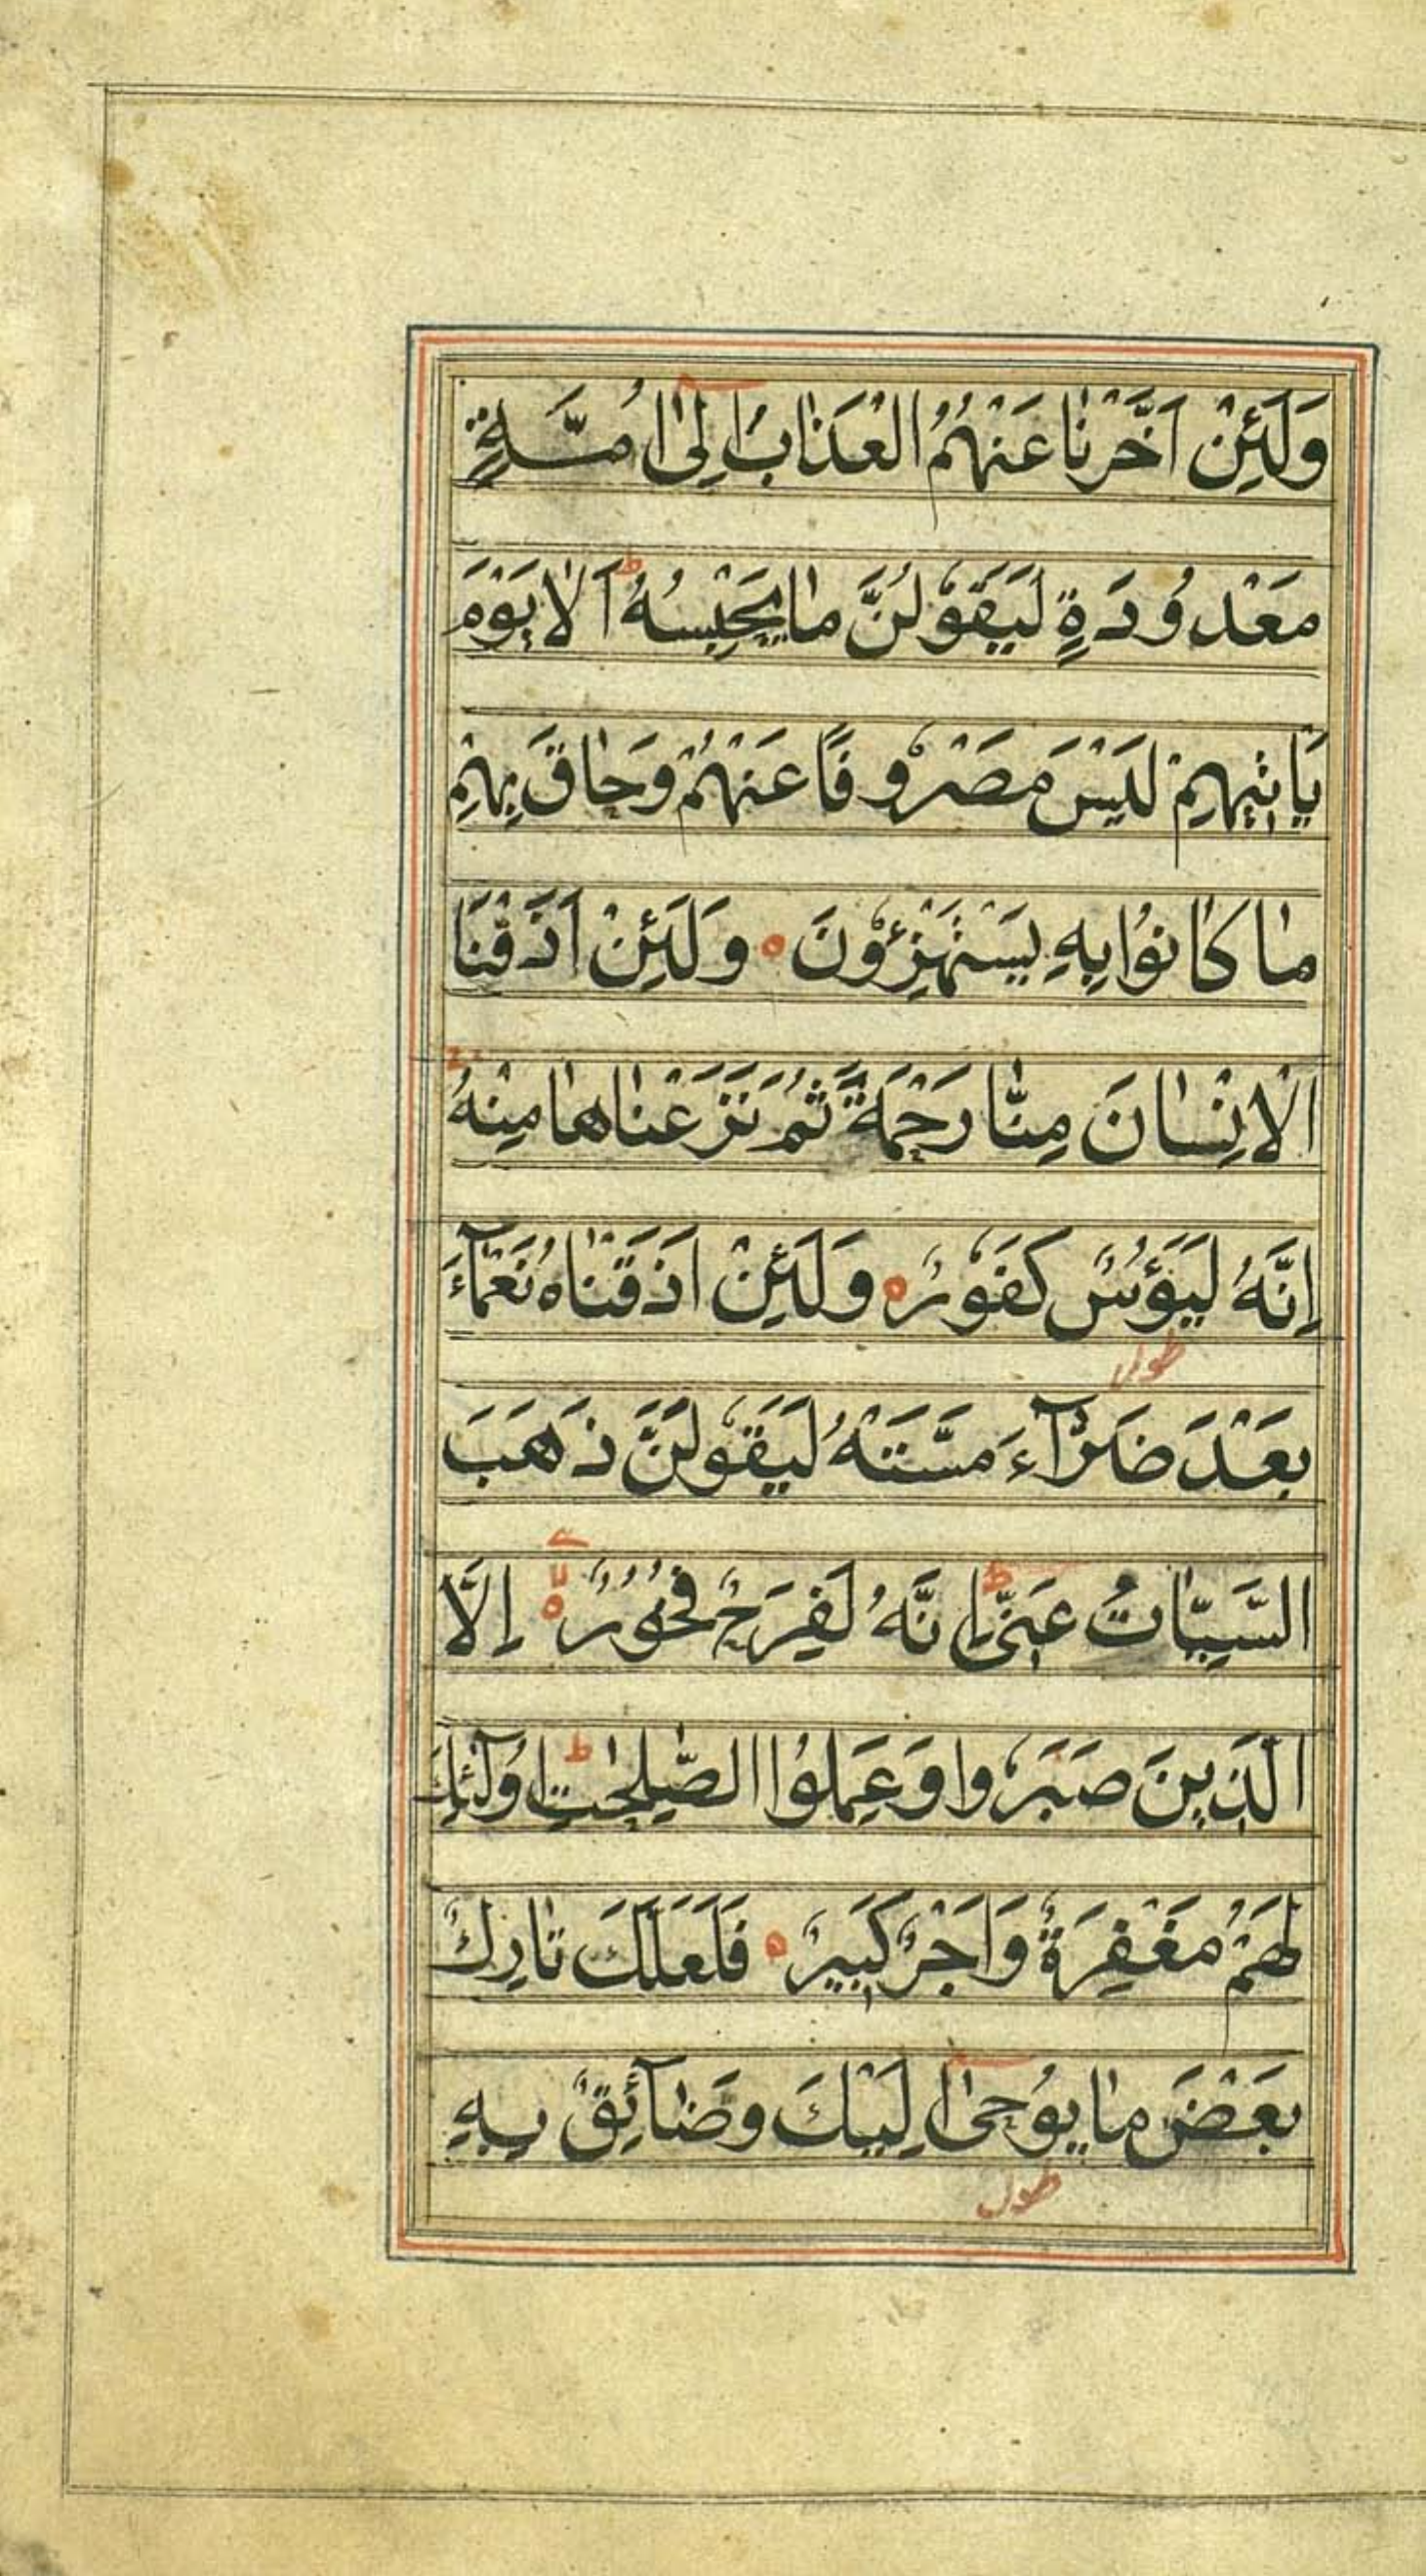 وَلَئِنْ اَخَّرْنٰا عَنْهُمُ الْعَذٰابَ اِلٰی اُمَّةٍ
مَعْدُودَةٍ لَيَقُولُنَّ مٰا يَحْبِسُهُ ط اَلٰا يَوْمَ
يَاْتِيهِمْ لَيْسَ مَصْرُوفًا عَنْهُمْ وَحٰاقَ بِهِمْ
مٰا كٰانُوا بِهِ يَسْتَهْزِؤُنَ ه وَلَئِنْ اَذَقْنَا
الْاِنْسٰانَ مِنّٰا رَحْمَةً ثُمَّ نَزَعْنٰاهٰا مِنْهُ
اِنَّهُ لَيَؤُسٌ كَفُورٌ ه وَلَئِنْ اَذَقْنٰاهُ نَعْمٰآءَ
طول
بَعْدَ ضَرّٰآءَ مَسَّتْهُ لَيَقُولَنَّ ذَهَبَ
السَّيِّئٰاتُ عَنّٖی ط اِنَّهُ لَفَرِحٌ فَخُورٌ ه اِلَّا
الَّذِينَ صَبَرُوا وَعَمِلُوا الصّٰلِحٰتِ ط اُولٰٓئِكَ
لَهُمْ مَغْفِرَةٌ وَاَجْرٌ كَبِيرٌ ه فَلَعَلَّكَ تٰارِكٌ
بَعْضَ مٰا يُوحٰی اِلَيْكَ وَضٰآئِقٌ بِهِ
طول